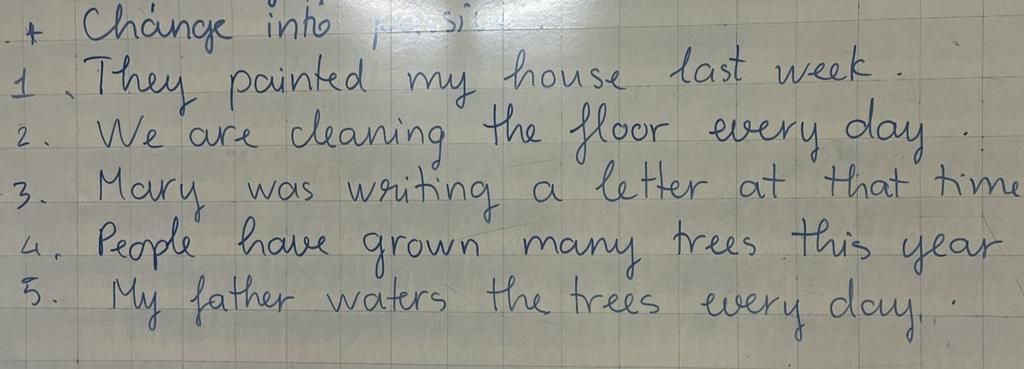 * Change into
1. They painted my house last week.
2. We are cleaning the floor every day.
3. Mary was writing a letter at that time
4. People have grown many trees this year
5. My father waters the trees every day.